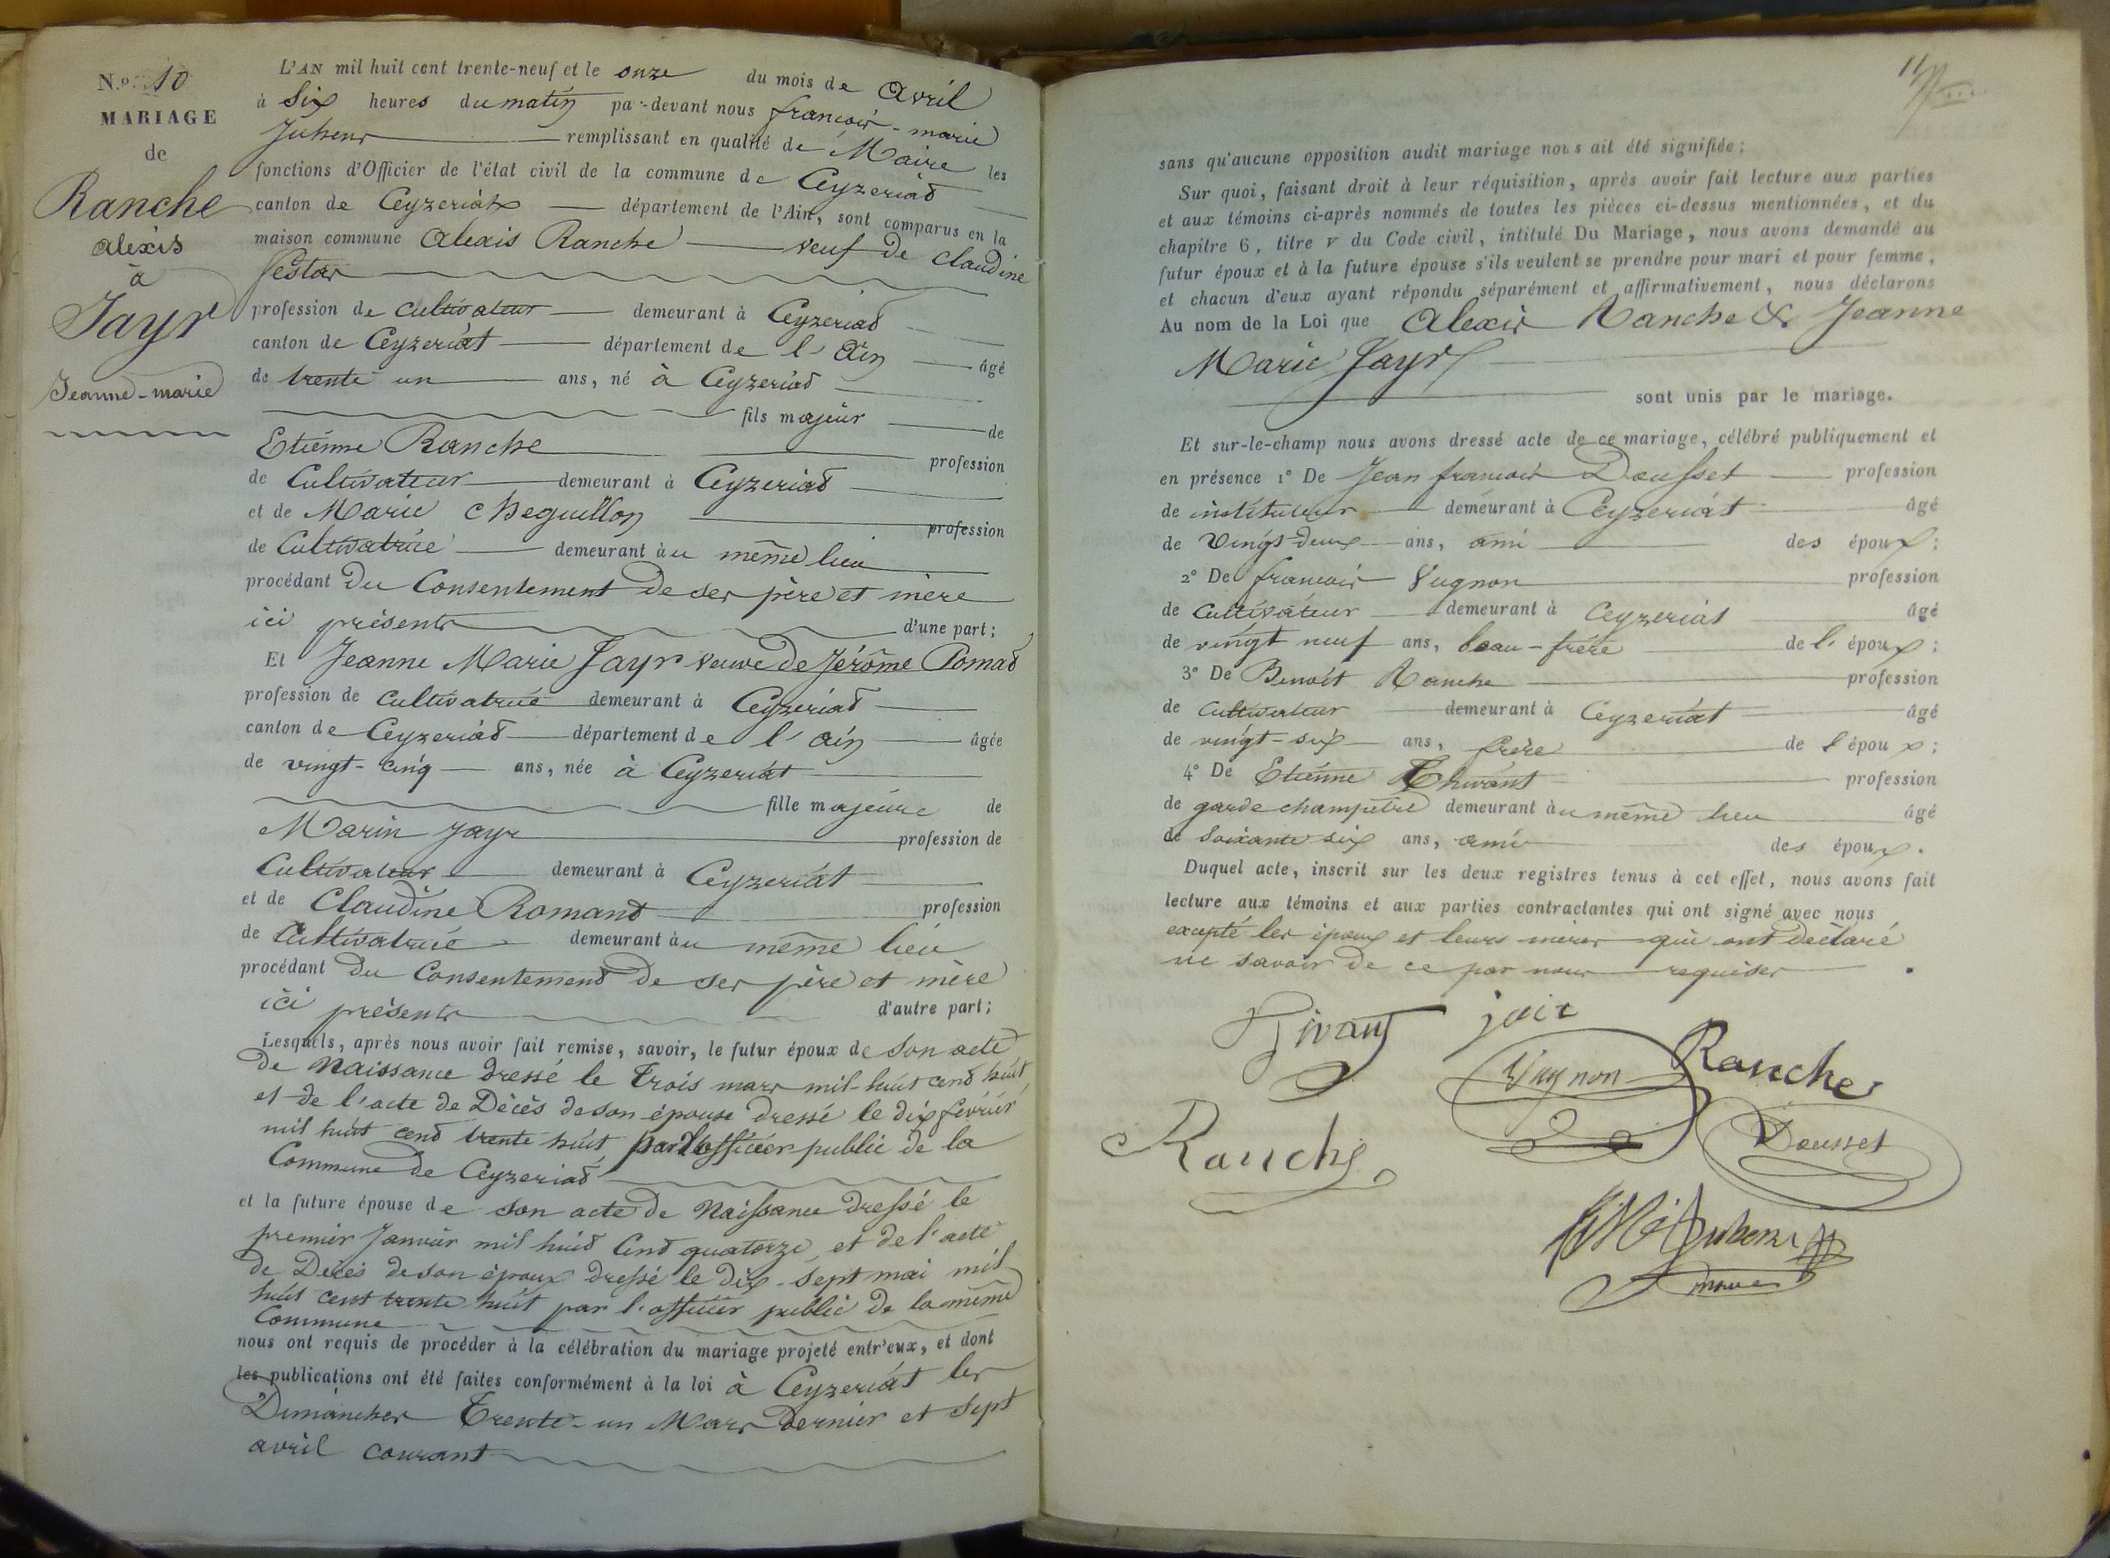 N.º 10
MARIAGE
de
Ranche
alexis
à
Jayr
Jeanne-marie
L'AN mil huit cent trente-neuf et le onze du mois de avril
à Six heures du matin par-devant nous francois-marie
remplissant en qualité de Maire les
fonctions d'Officier de l'état civil de la commune de Ceyzeriat
canton de Ceyzeriat département de l'Ain, sont comparus en la
maison commune Alexis Ranche veuf de claudine
profession de cultivateur demeurant à Ceyzeriat
canton de Ceyzeriat département de l'Ain âgé
de trente un ans, né à Ceyzeriat
fils majeur de
Etiénne Ranche profession
de Cultivateur demeurant à Ceyzeriat
et de Marie Cheguillon profession
de Cultivatrice demeurant àu même lieu
procédant du Consentement de ses père et mère
ici présents d'une part;
Et Jeanne Marie Jayr veuve de Jérôme Romad
profession de cultivatrice demeurant à Ceyzeriat
canton de Ceyzeriat département de l'Ain âgée
de vingt-cinq ans, née à Ceyzeriat
fille majeure de
Marin Jayr profession de
Cultivateur demeurant à Ceyzeriat
et de Claudine Romand profession
de Cultivatrice demeurant àu même lieu
procédant du Consentement de ses père et mère
ici présents d'autre part;
Lesquels, après nous avoir fait remise, savoir, le futur époux de son acte
de Naissance dressé le Trois mars mil-huit cent huit
et de l'acte de Décès de son épouse dressé le dix février
mil huit cent trente huit par l'officier public de la
Commune de Ceyzeriat
et la future épouse de son acte de Naissance dressé le
premier Janvier mil huit Cent quatorze, et de l'acte
de Décès de son époux dressé le dix-sept mai mil
huit cent trente huit par l'officier public de la même
Commune
nous ont requis de procéder à la célébration du mariage projeté entr'eux, et dont
les publications ont été faites conformément à la loi à Ceyzeriat les
Dimanches Trente-un Mars dernier et Sept
avril courant
11
sans qu'aucune opposition audit mariage nous ait été signifiée;
Sur quoi, faisant droit à leur réquisition, après avoir fait lecture aux parties
et aux témoins ci-après nommés de toutes les pièces ci-dessus mentionnées, et du
chapitre 6, titre V du Code civil, intitulé Du Mariage, nous avons demandé au
futur époux et à la future épouse s'ils veulent se prendre pour mari et pour femme,
et chacun d'eux ayant répondu séparément et affirmativement, nous déclarons
Au nom de la Loi que Alexis Ranche & Jeanne
Marie Jayr
sont unis par le mariage.
Et sur-le-champ nous avons dressé acte de ce mariage, célébré publiquement et
en présence 1º De Jean francois Dousset profession
de instituteur demeurant à Ceyzeriat âgé
de Vingt-deux ans, ami des époux;
2º De francois Vugnon profession
de Cultivateur demeurant à Ceyzeriat âgé
de vingt neuf ans, beau-frère de l'époux;
3º De Benoit Ranche profession
de Cultivateur demeurant à Ceyzeriat âgé
de vingt-six ans, frère de l'époux;
4º De Etiénne Thivant profession
de garde champetre demeurant àu même lieu âgé
de Soixante six ans, ami des époux.
Duquel acte, inscrit sur les deux registres tenus à cet effet, nous avons fait
lecture aux témoins et aux parties contractantes qui ont signé avec nous
excepté les époux et leurs mères qui ont déclaré
ne savoir de ce par nous requises
Tivant jair
Vugnon Ranche
Ranche Dousset
maire